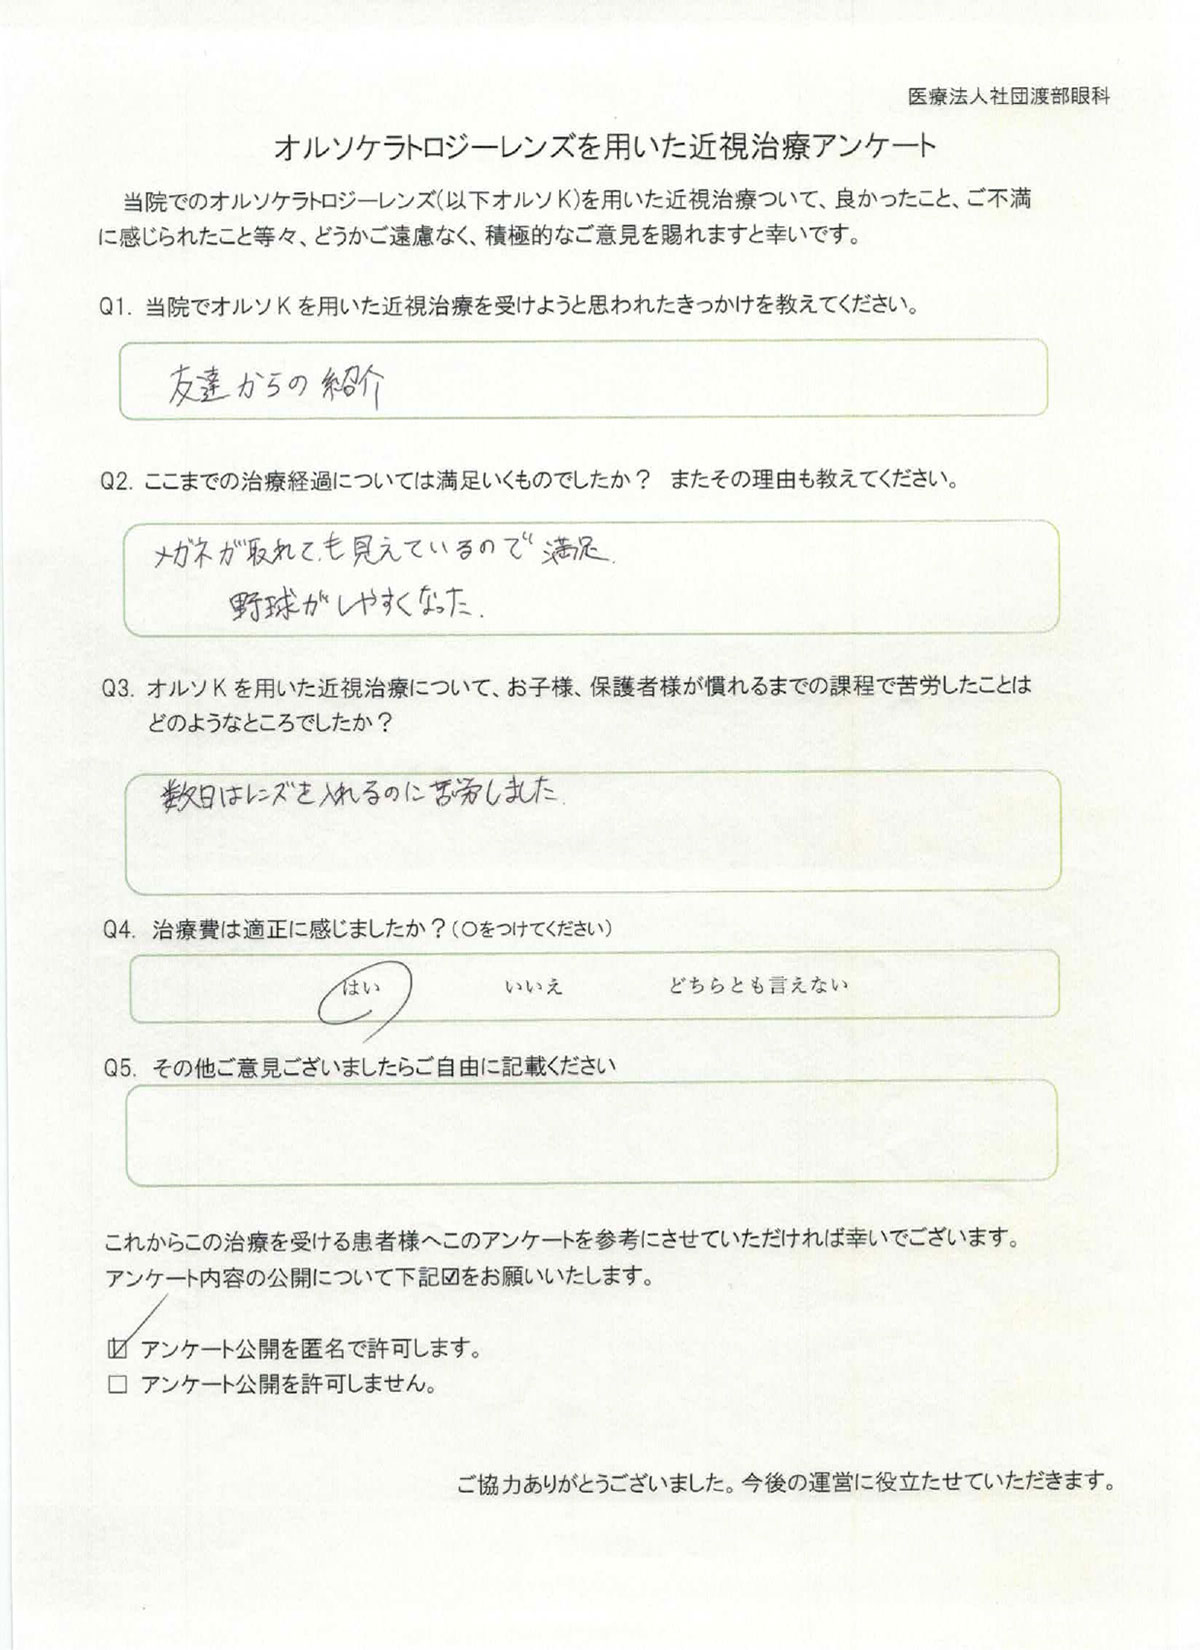 医療法人社団渡部眼科
オルソケラトロジーレンズを用いた近視治療アンケート
当院でのオルソケラトロジーレンズ(以下オルソK)を用いた近視治療ついて、良かったこと、ご不満
に感じられたこと等々、どうかご遠慮なく、積極的なご意見を賜れますと幸いです。
Q1. 当院でオルソKを用いた近視治療を受けようと思われたきっかけを教えてください。
友達からの紹介
Q2. ここまでの治療経過については満足いくものでしたか? またその理由も教えてください。
メガネが取れても見えているので満足.
野球がしやすくなった.
Q3. オルソKを用いた近視治療について、お子様、保護者様が慣れるまでの課程で苦労したことは
どのようなところでしたか?
数日はレンズを入れるのに苦労しました.
Q4. 治療費は適正に感じましたか?(○をつけてください)
はい いいえ どちらとも言えない
Q5. その他ご意見ございましたらご自由に記載ください
これからこの治療を受ける患者様へこのアンケートを参考にさせていただければ幸いでございます。
アンケート内容の公開について下記☑をお願いいたします。
☑ アンケート公開を匿名で許可します。
□ アンケート公開を許可しません。
ご協力ありがとうございました。今後の運営に役立たせていただきます。